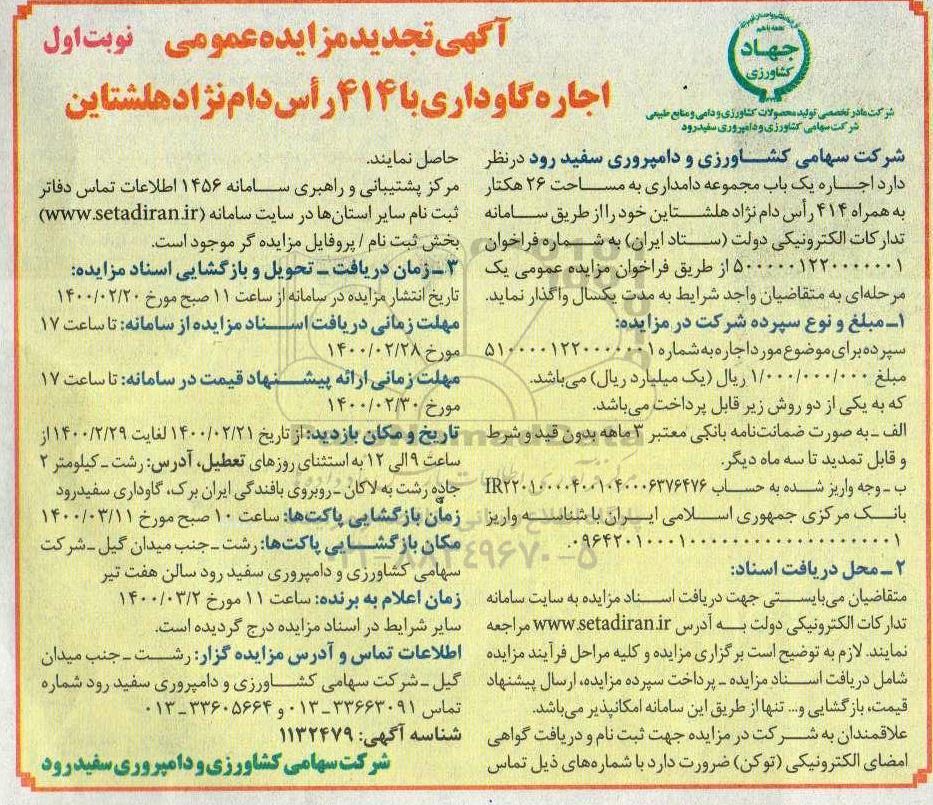 آگهی تجدید مزایده عمومی
نوبت اول
اجاره گاوداری با ۴۱۴ رأس دام نژاد هلشتاین
جهاد
کشاورزی
شرکت مادر تخصصی تولید محصولات کشاورزی و دامی و منابع طبیعی
شرکت سهامی کشاورزی و دامپروری سفیدرود
شرکت سهامی کشاورزی و دامپروری سفید رود در نظر
دارد اجاره یک باب مجموعه دامداری به مساحت ۲۶ هکتار
به همراه ۴۱۴ رأس دام نژاد هلشتاین خود را از طریق سامانه
تدارکات الکترونیکی دولت (ستاد ایران) به شماره فراخوان
۵۰۰۰۰۰۱۲۲۰۰۰۰۰۰۱ از طریق فراخوان مزایده عمومی یک
مرحله‌ای به متقاضیان واجد شرایط به مدت یکسال واگذار نماید.
۱ـ مبلغ و نوع سپرده شرکت در مزایده:
سپرده برای موضوع مورد اجاره به شماره ۵۱۰۰۰۰۱۲۲۰۰۰۰۰۰۱
مبلغ ۱/۰۰۰/۰۰۰/۰۰۰ ریال (یک میلیارد ریال) می‌باشد.
که به یکی از دو روش زیر قابل پرداخت می‌باشد.
الف ـ به صورت ضمانت‌نامه بانکی معتبر ۳ ماهه بدون قید و شرط
و قابل تمدید تا سه ماه دیگر.
ب ـ وجه واریز شده به حساب IR۲۲۰۱۰۰۰۰۴۰۰۱۰۴۰۰۰۶۳۷۶۴۷۶
بانک مرکزی جمهوری اسلامی ایران با شناسه واریز
۲ ـ محل دریافت اسناد:
متقاضیان می‌بایستی جهت دریافت اسناد مزایده به سایت سامانه
تدارکات الکترونیکی دولت به آدرس www.setadiran.ir مراجعه
نمایند. لازم به توضیح است برگزاری مزایده و کلیه مراحل فرآیند مزایده
شامل دریافت اسناد مزایده ـ پرداخت سپرده مزایده، ارسال پیشنهاد
قیمت، بازگشایی و... تنها از طریق این سامانه امکانپذیر می‌باشد.
علاقمندان به شرکت در مزایده جهت ثبت نام و دریافت گواهی
امضای الکترونیکی (توکن) ضرورت دارد با شماره‌های ذیل تماس
حاصل نمایند.
مرکز پشتیبانی و راهبری سامانه ۱۴۵۶ اطلاعات تماس دفاتر
ثبت نام سایر استان‌ها در سایت سامانه (www.setadiran.ir)
بخش ثبت نام / پروفایل مزایده گر موجود است.
۳ ـ زمان دریافت ـ تحویل و بازگشایی اسناد مزایده:
تاریخ انتشار مزایده در سامانه از ساعت ۱۱ صبح مورخ ۱۴۰۰/۰۲/۲۰
مهلت زمانی دریافت اسناد مزایده از سامانه: تا ساعت ۱۷
مورخ ۱۴۰۰/۰۲/۲۸
مهلت زمانی ارائه پیشنهاد قیمت در سامانه: تا ساعت ۱۷
مورخ ۱۴۰۰/۰۲/۳۰
تاریخ و مکان بازدید: از تاریخ ۱۴۰۰/۰۲/۲۱ لغایت ۱۴۰۰/۲/۲۹ از
ساعت ۹ الی ۱۲ به استثنای روزهای تعطیل، آدرس: رشت ـ کیلومتر ۲
جاده رشت به لاکان ـ روبروی بافندگی ایران برک، گاوداری سفیدرود
زمان بازگشایی پاکت‌ها: ساعت ۱۰ صبح مورخ ۱۴۰۰/۰۳/۱۱
مکان بازگشایی پاکت‌ها: رشت ـ جنب میدان گیل ـ شرکت
سهامی کشاورزی و دامپروری سفید رود سالن هفت تیر
زمان اعلام به برنده: ساعت ۱۱ مورخ ۱۴۰۰/۰۳/۲
سایر شرایط در اسناد مزایده درج گردیده است.
اطلاعات تماس و آدرس مزایده گزار: رشت ـ جنب میدان
گیل ـ شرکت سهامی کشاورزی و دامپروری سفید رود شماره
تماس ۳۳۶۶۳۰۹۱ ـ ۰۱۳ و ۳۳۶۰۵۶۶۴ ـ ۰۱۳
شناسه آگهی: ۱۱۳۲۴۷۹
شرکت سهامی کشاورزی و دامپروری سفیدرود